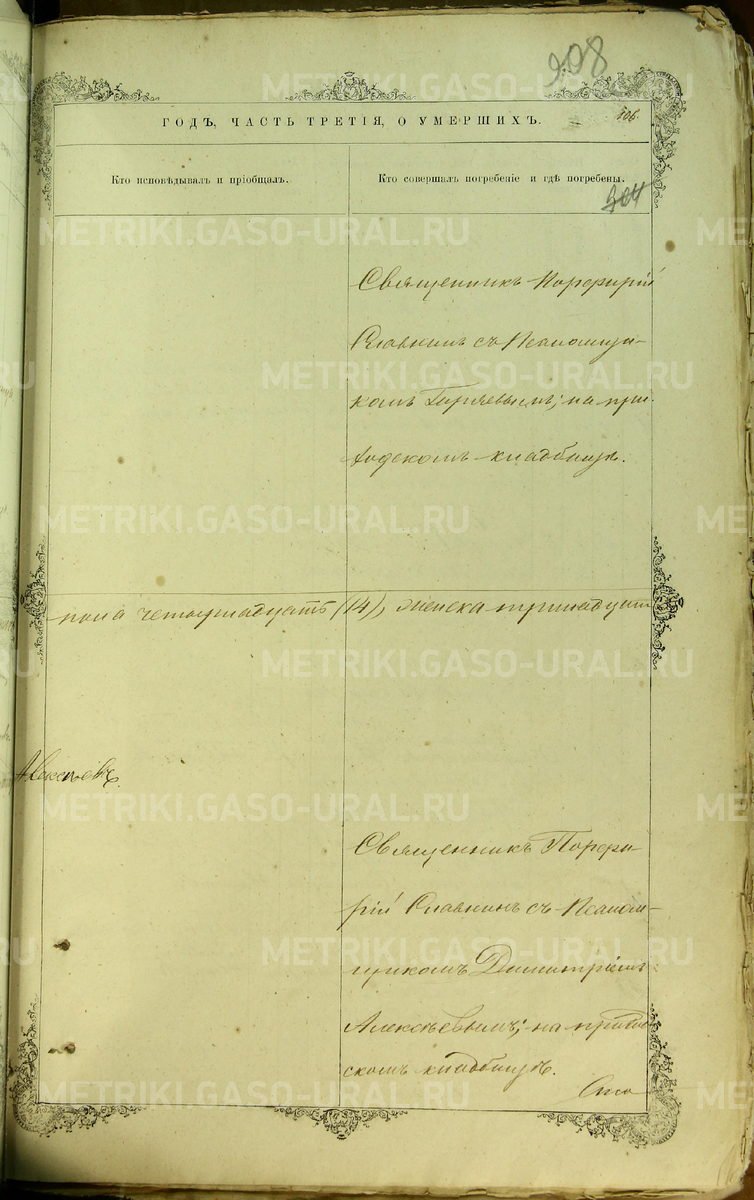 908
ГОДЪ, ЧАСТЬ ТРЕТІЯ, О УМЕРШИХЪ.
106.
Кто исповѣдывалъ и пріобщалъ.
Кто совершалъ погребеніе и гдѣ погребены.
304
Священникъ Порфирій
Славнинъ съ Псаломщи-
комъ Гиряевымъ; на при-
ходскомъ кладбищѣ.
пола четырнадцать (14), женска тринадцать
Алексѣевъ.
Священникъ Порфи-
рій Славнинъ съ Псалом-
щикомъ Димитріемъ
Алексѣевымъ; на приход-
скомъ кладбищѣ.
METRIKI.GASO-URAL.RU